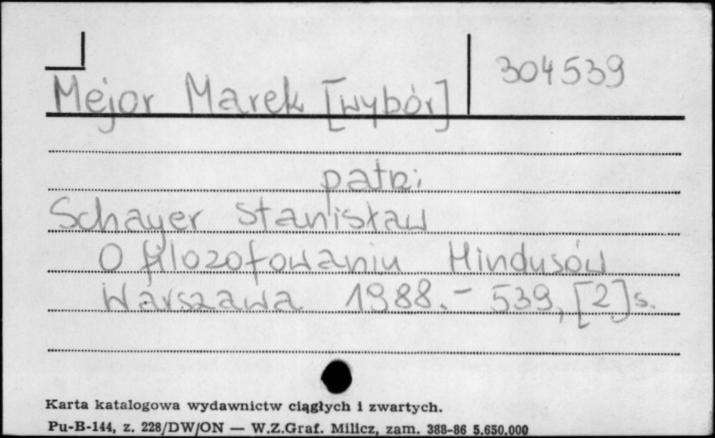 304539
Mejor Marek [wybór]
patrz:
Schayer Stanisław
O filozofowaniu Hindusów
Warszawa 1988. - 539, [2] s.
Karta katalogowa wydawnictw ciągłych i zwartych.
Pu-B-144, z. 228/DW/ON — W.Z.Graf. Milicz, zam. 388-86 5.650.000